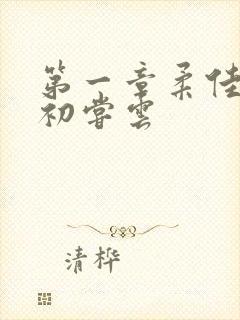 第一章柔佳
初尝云
清桦